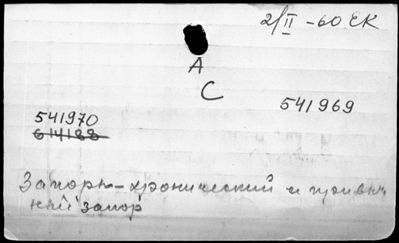 2/II - 60 ЕК
А
С
541969
541970
614188
Запоры - хронический и привыч
ный запор